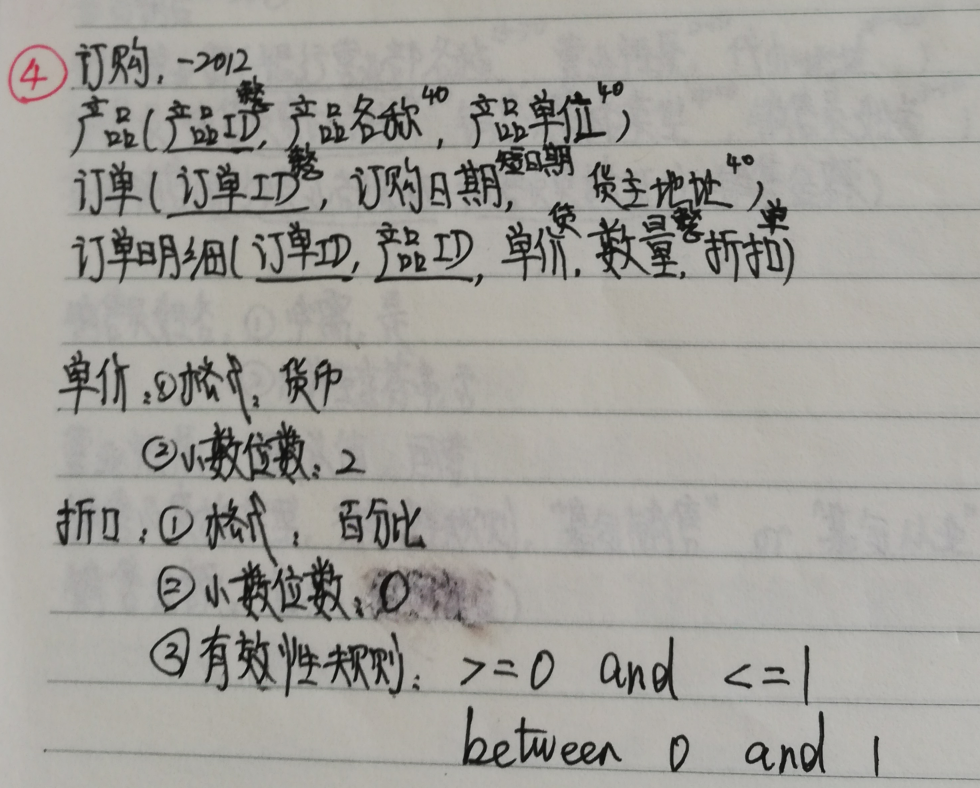 ④ 订购.-2012
整 40 40
产品(产品ID, 产品名称, 产品单位)
整 短日期 40
订单(订单ID, 订购日期, 货主地址),
货 整 单
订单明细(订单ID, 产品ID, 单价, 数量, 折扣)
单价:①格式:货币
②小数位数:2
折口:①格式:百分比
②小数位数:0
③有效性规则:>=0 and <=1
between 0 and 1